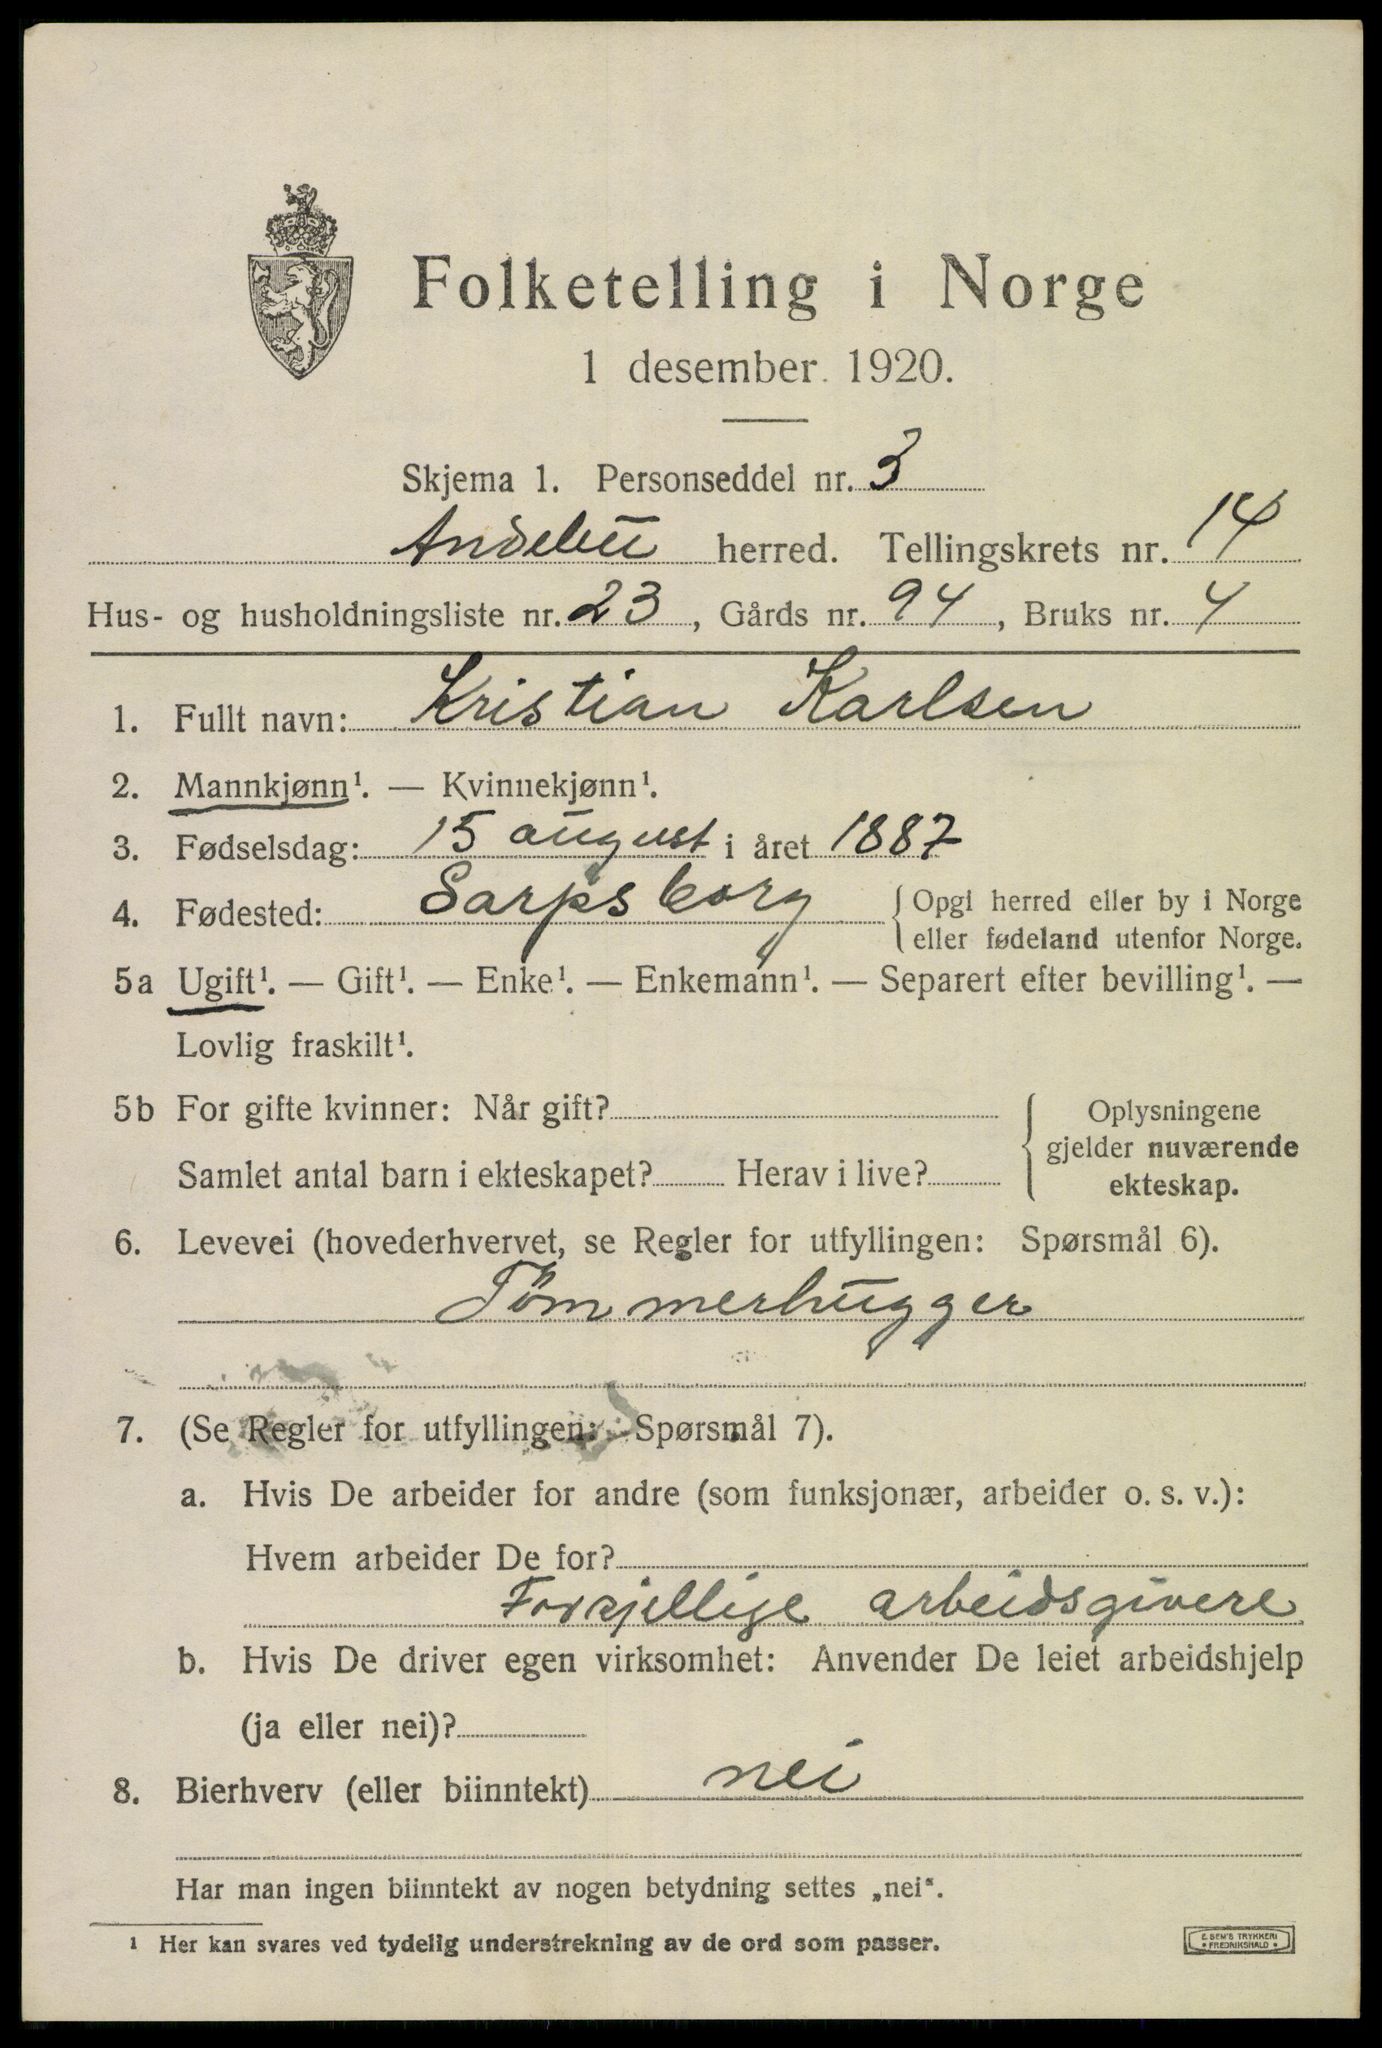 Folketelling i Norge
1 desember 1920.
Skjema 1. Personseddel nr. 3
Andebu herred. Tellingskrets nr. 14
Hus- og husholdningsliste nr. 23, Gårds nr. 94, Bruks nr. 4
1. Fullt navn: Kristian Karlsen
2. Mannkjønn¹. — Kvinnekjønn¹.
3. Fødselsdag: 15 august i året 1887
4. Fødested: Sarpsborg { Opgi herred eller by i Norge
eller fødeland utenfor Norge.
5a Ugift¹. — Gift¹. — Enke¹. — Enkemann¹. — Separert efter bevilling¹. —
Lovlig fraskilt¹.
5b For gifte kvinner: Når gift?
Samlet antal barn i ekteskapet? Herav i live?
{ Oplysningene
gjelder nuværende
ekteskap.
6. Levevei (hovederhvervet, se Regler for utfyllingen: Spørsmål 6).
Tömmerhugger
7. (Se Regler for utfyllingen: Spørsmål 7).
a. Hvis De arbeider for andre (som funksjonær, arbeider o. s. v.):
Hvem arbeider De for?
Forkjellige arbeidsgivere
b. Hvis De driver egen virksomhet: Anvender De leiet arbeidshjelp
(ja eller nei)?
8. Bierhverv (eller biinntekt) nei
Har man ingen biinntekt av nogen betydning settes „nei".
¹ Her kan svares ved tydelig understrekning av de ord som passer.
E. SEM'S TRYKKERI
• FREDRIKSHALD •